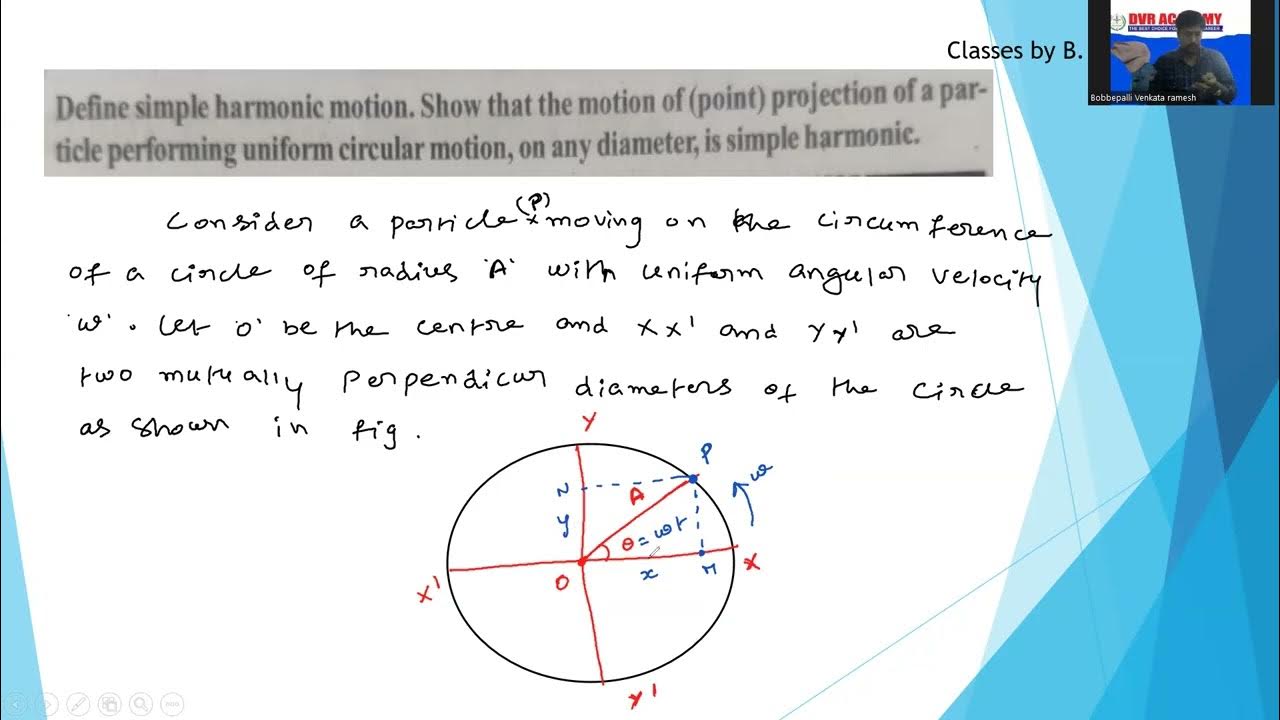 DVR ACADEMY
Classes by B.
Bobbepalli Venkata ramesh
Define simple harmonic motion. Show that the motion of (point) projection of a par-
ticle performing uniform circular motion, on any diameter, is simple harmonic.
(P)
Consider a particle x moving on the circumference
of a circle of radius 'A' with uniform angular velocity
'ω'. Let 'O' be the centre and XX' and YY' are
two mutually perpendicur diameters of the circle
as shown in fig.
Y
P
N
A
ω
y
θ = ωt
O
x
M
X
X'
Y'